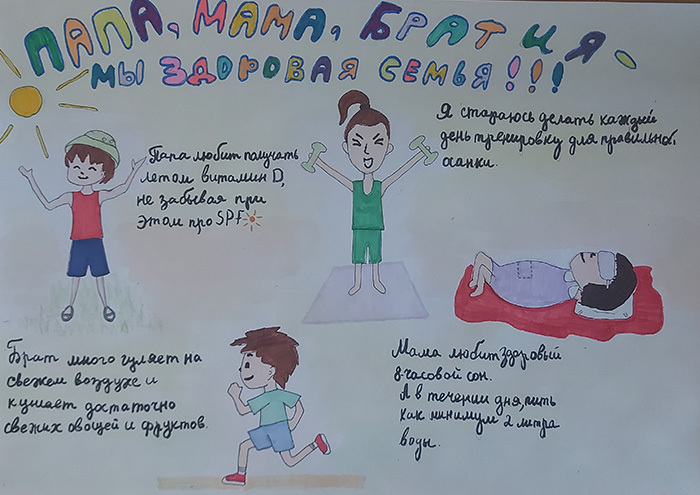 ПАПА, МАМА, БРАТ И Я -
МЫ ЗДОРОВАЯ СЕМЬЯ!!!
Папа любит получать
летом витамин D,
не забывая при
этом про SPF
Я стараюсь делать каждый
день тренировку для правильной
осанки.
Брат много гуляет на
свежем воздухе и
кушает достаточно
свежих овощей и фруктов.
Мама любит здоровый
8-часовой сон.
А в течении дня, пить
как минимум 2 литра
воды.